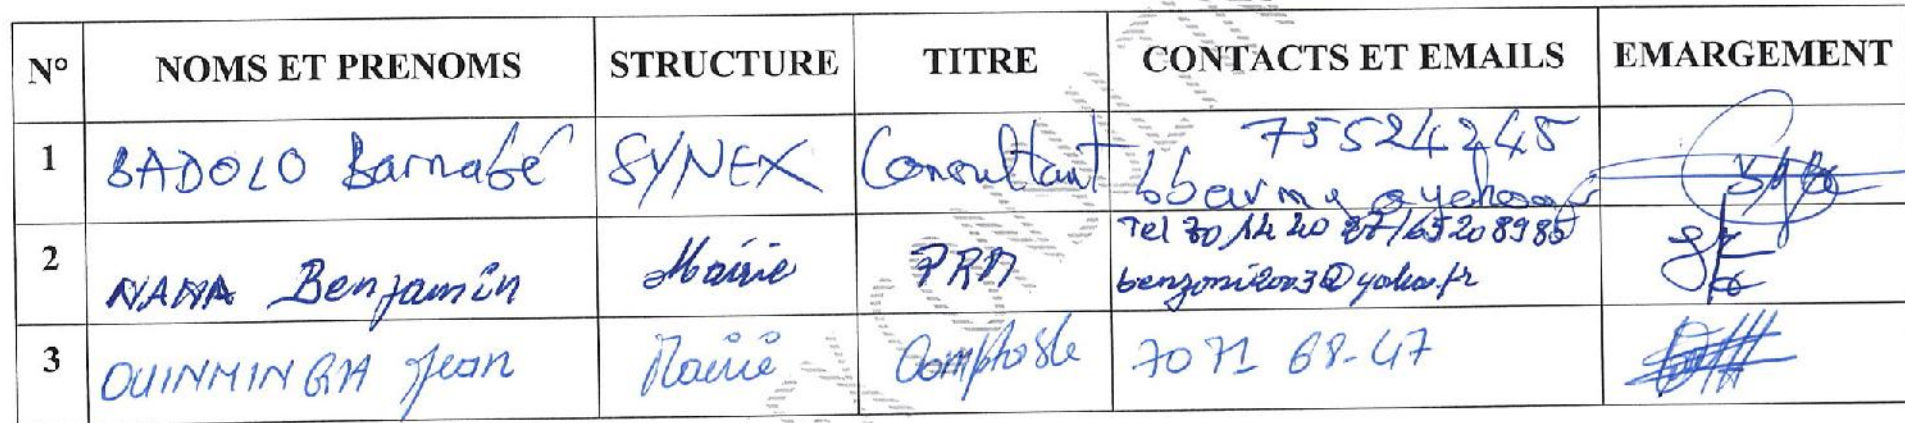 N° NOMS ET PRENOMS STRUCTURE TITRE CONTACTS ET EMAILS EMARGEMENT
1 BADOLO Barnabé SYNEX Consultant 75524245
2 NAMA Benjamin Mairie PRM Tel 70 14 20 87/65208985
benzoni2003@yahoo.fr
3 OUINMINGA Jean Mairie Comptable 7071 68-47